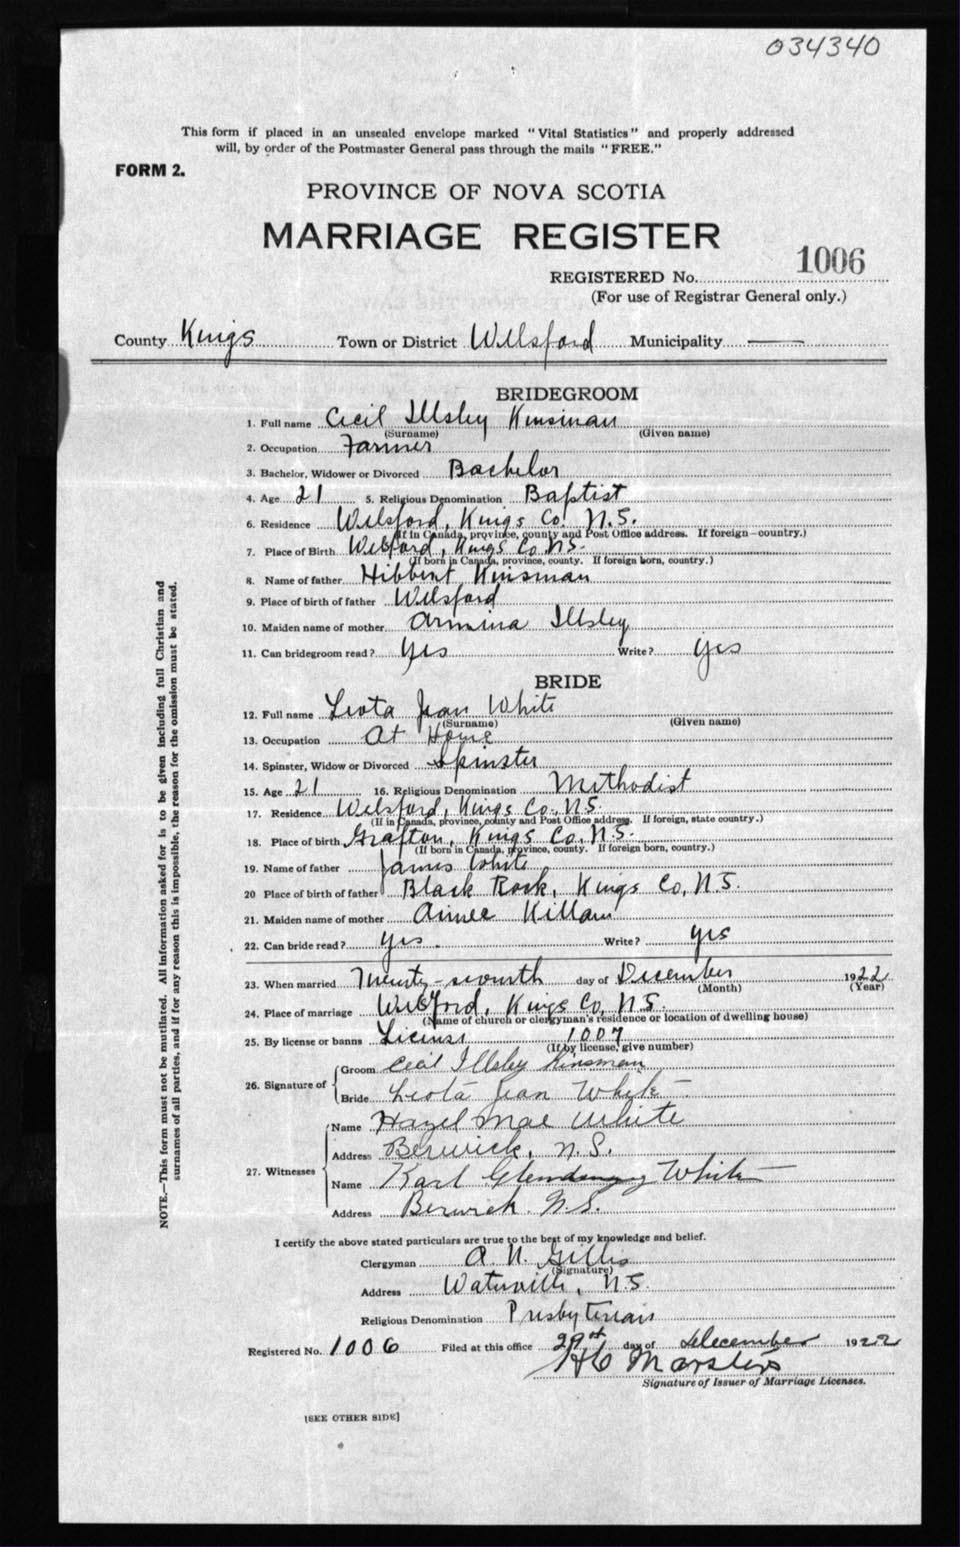 034340
This form if placed in an unsealed envelope marked "Vital Statistics" and properly addressed
will, by order of the Postmaster General pass through the mails "FREE."
FORM 2.
PROVINCE OF NOVA SCOTIA
MARRIAGE REGISTER
REGISTERED No. 1006
(For use of Registrar General only.)
County Kings Town or District Wilsford Municipality —
BRIDEGROOM
1. Full name Cecil Illsley Kinsman
(Surname) (Given name)
2. Occupation Farmer
3. Bachelor, Widower or Divorced Bachelor
4. Age 21 5. Religious Denomination Baptist
6. Residence Wilsford, Kings Co. N.S.
(If in Canada, province, county and Post Office address. If foreign—country.)
7. Place of Birth Welsford, Kings Co N.S.
(If born in Canada, province, county. If foreign born, country.)
8. Name of father Hibbert Kinsman
9. Place of birth of father Wilsford
10. Maiden name of mother Armina Illsley
11. Can bridegroom read? Yes Write? yes
BRIDE
12. Full name Leota Jean White
(Surname) (Given name)
13. Occupation At Home
14. Spinster, Widow or Divorced Spinster
15. Age 21 16. Religious Denomination Methodist
17. Residence Welsford, Kings Co. N.S.
(If in Canada, province, county and Post Office address. If foreign, state country.)
18. Place of birth Grafton, Kings Co. N.S.
(If born in Canada, province, county. If foreign born, country.)
19. Name of father James White
20 Place of birth of father Black Rock, Kings Co, N.S.
21. Maiden name of mother Aimee Killam
22. Can bride read? yes. Write? yes
23. When married Twenty-seventh day of December 1922
(Month) (Year)
24. Place of marriage Welsford, Kings Co, N.S.
(Name of church or clergyman's residence or location of dwelling house)
25. By license or banns License 1007
(If by license, give number)
26. Signature of
Groom Cecil Illsley Kinsman
Bride Leota Jean White
27. Witnesses
Name Hazel Mae White
Address Berwick, N.S.
Name Karl White
Address Berwick N.S.
I certify the above stated particulars are true to the best of my knowledge and belief.
Clergyman A. N. Gillis
(Signature)
Address Waterville, N.S.
Religious Denomination Presbyterian
Registered No. 1006 Filed at this office 29th day of December 1922
H C Marsters
Signature of Issuer of Marriage Licenses.
[SEE OTHER SIDE]
NOTE.—This form must not be mutilated. All information asked for is to be given including full Christian and
surnames of all parties, and if for any reason this is impossible, the reason for the omission must be stated.